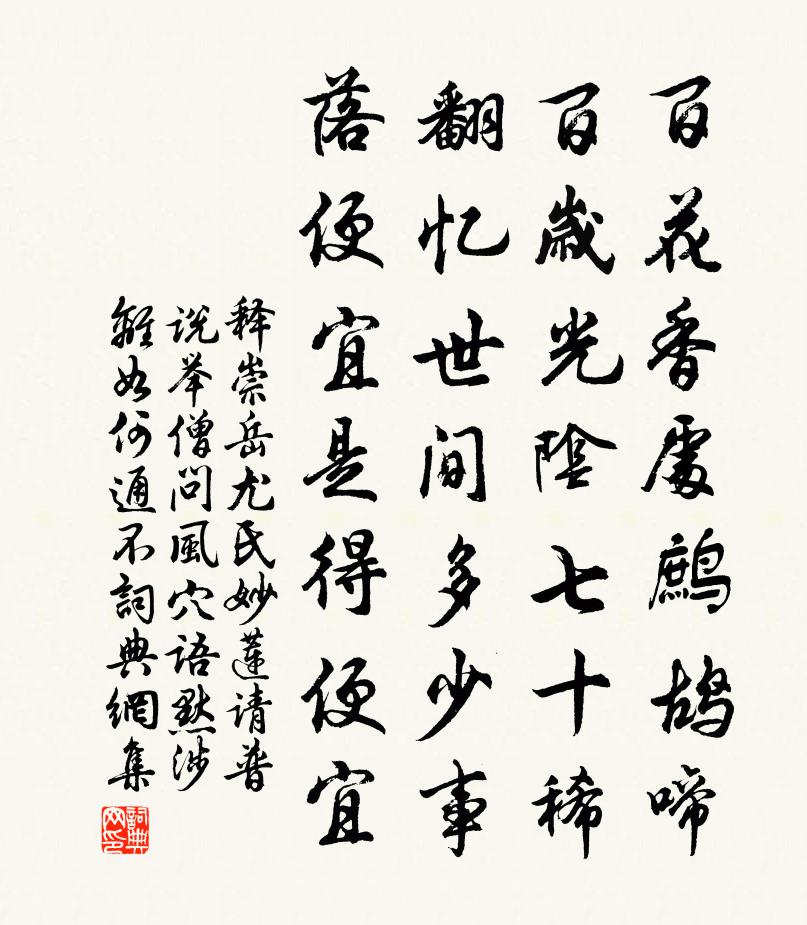 百花香處鷓鴣啼
百歲光陰七十稀
翻忆世间多少事
落便宜是得便宜
释崇岳尤氏妙蓮请普
说举僧问風穴语默涉
離如何通不詞典網集
詞典
网印